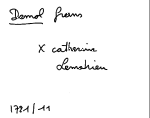 Demol frans
X catherine
Lemahieu
1781/11